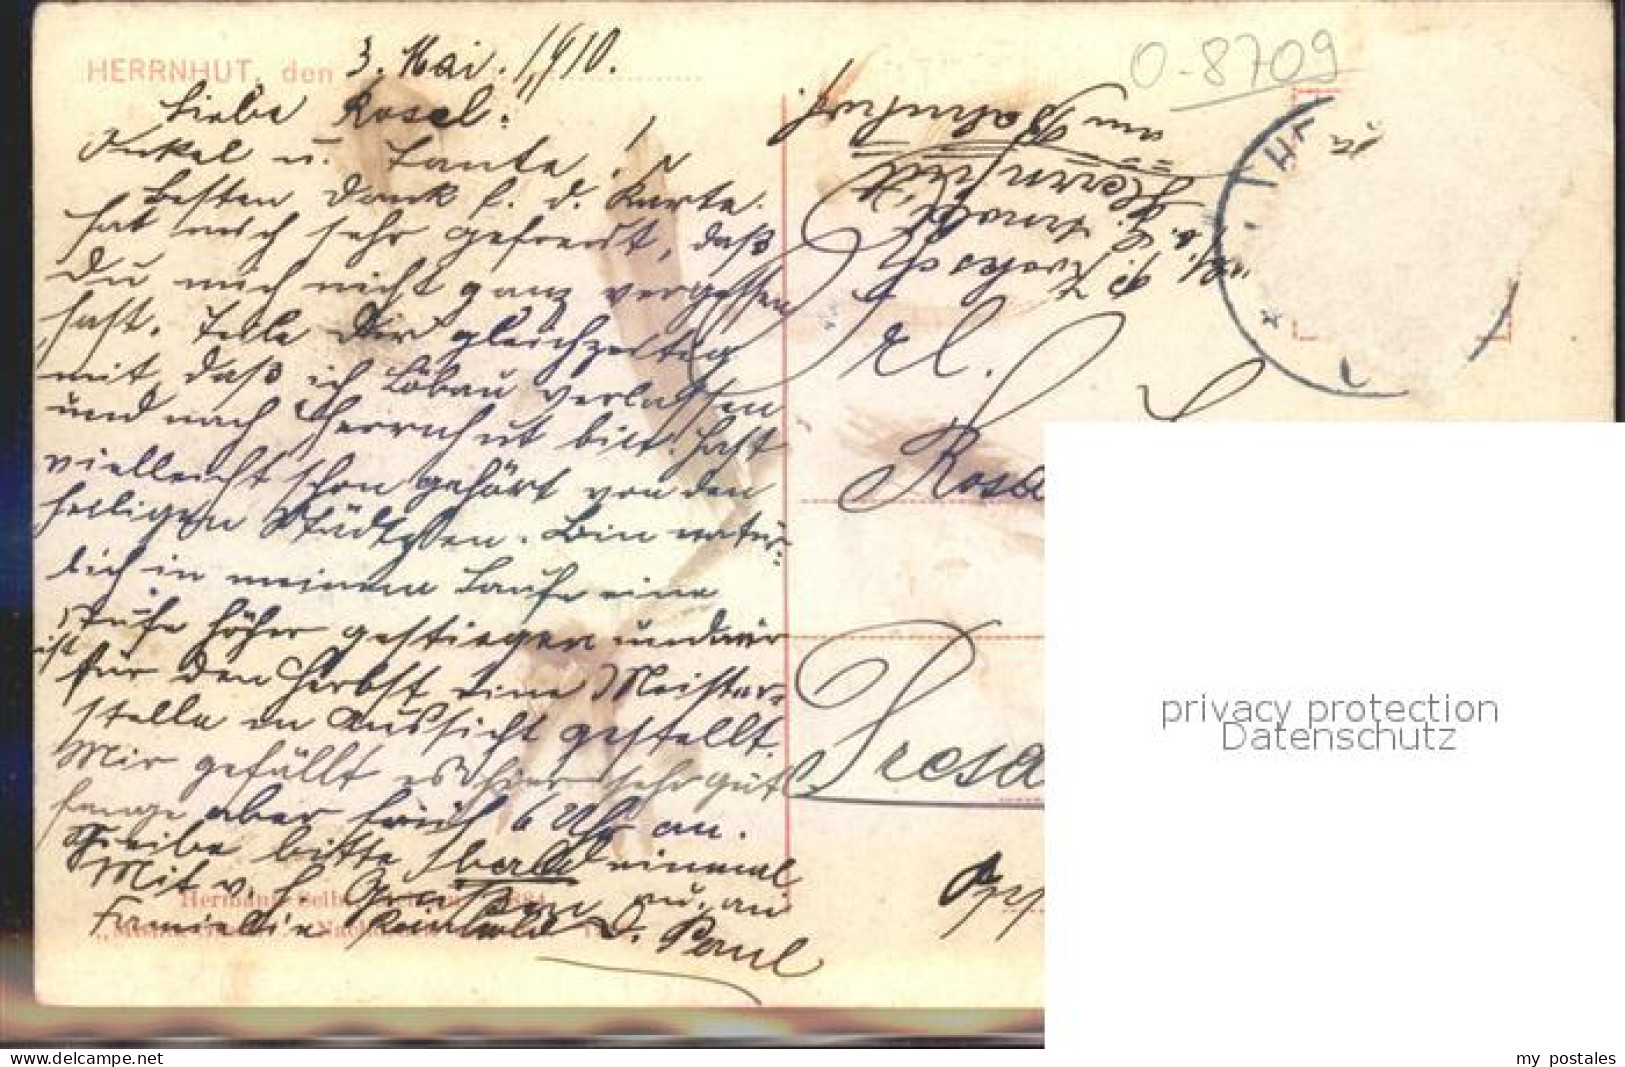 HERRNHUT, den 3. Mai. 1910.
Liebe Rosel.
Onkel u. Tante!
Besten Dank f. d. Karte.
hat mich sehr gefreut, daß
Du mich nicht ganz vergessen
hast. Teile Dir gleichzeitig
mit, daß ich Löbau verlassen
und nach Herrnhut bin. Hast
vielleicht schon gehört von den
heiligen Städtchen. Bin natür-
lich in meinem Laufe eine
Stufe höher gestiegen und mir
ist für den Herbst eine Meister-
stelle in Aussicht gestellt.
Mir gefällt es hier sehr gut
fange aber früh 6 Uhr an.
Schreibe bitte bald einmal
Mit v. h. Grüßen an
Familie Reinhold D. Paul
O-8709
am Bahnhof.
Herrnhut
Frl.
Rosa
Dresd
privacy protection
Datenschutz
www.delcampe.net
my_postales